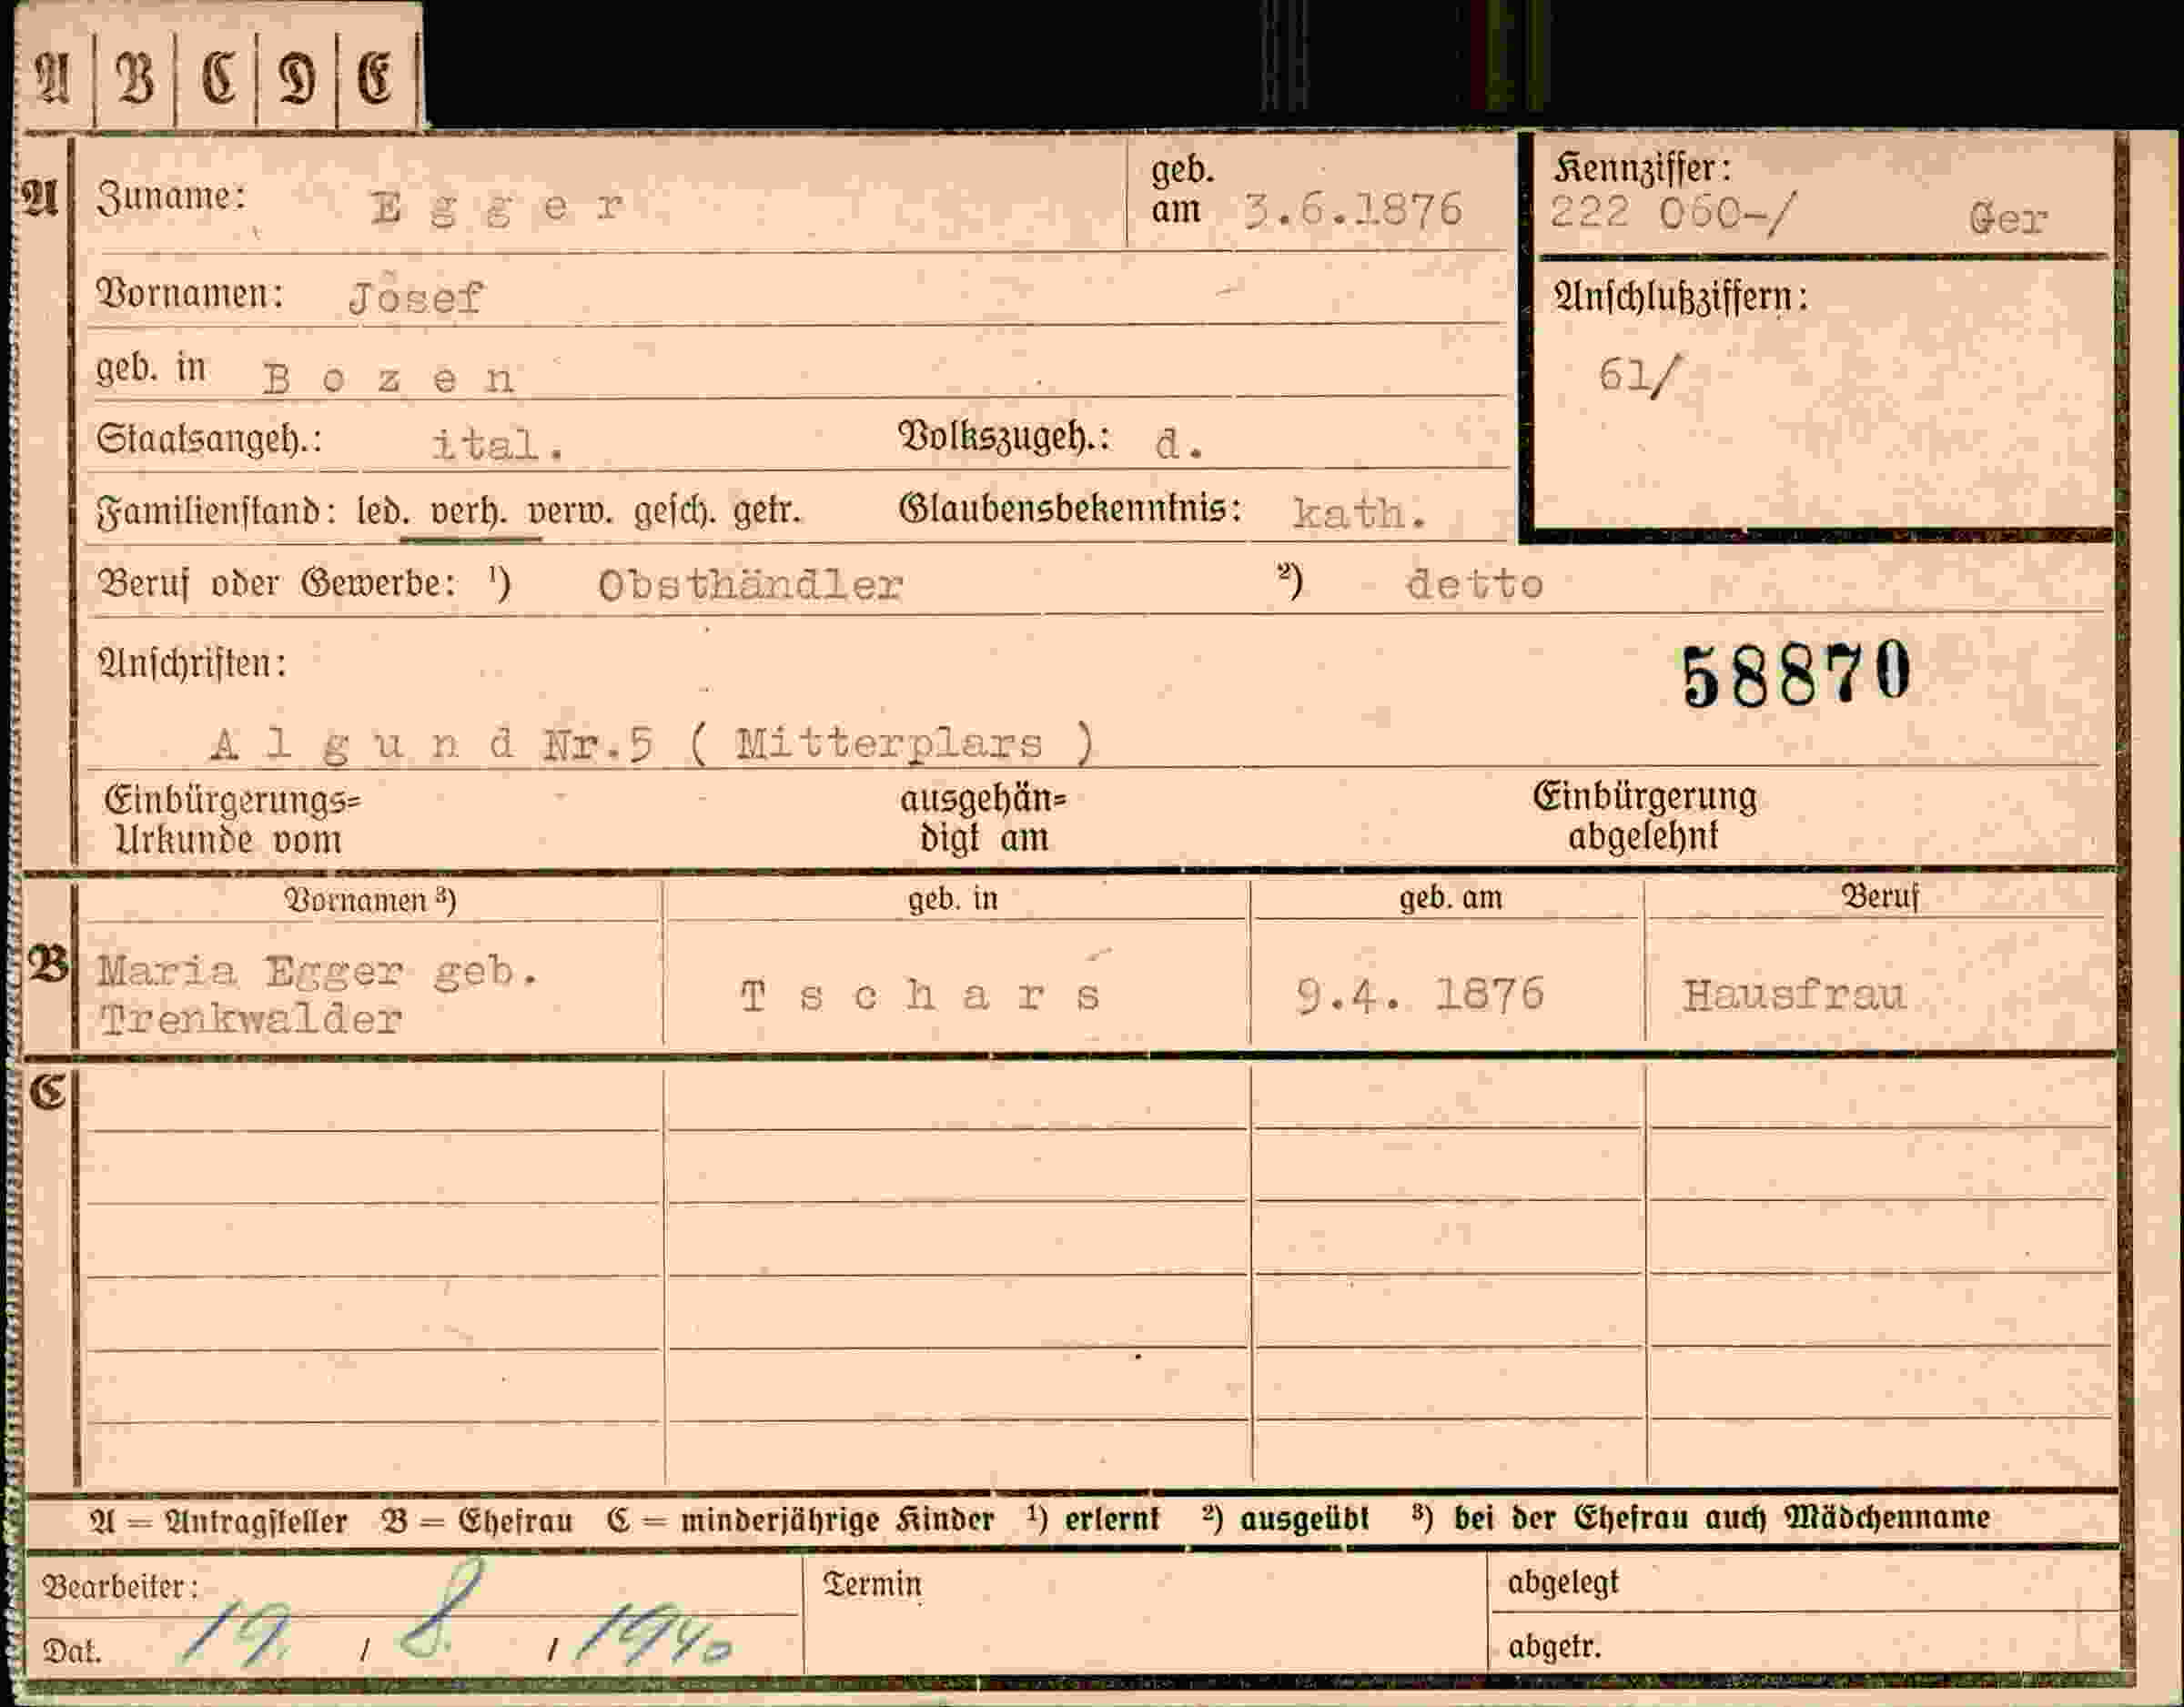 A B C D E
A Zuname: Egger geb. am 3.6.1876
Kennziffer:
222 060-/ Ger
Vornamen: Josef
Anschlußziffern:
61/
geb. in Bozen
Staatsangeh.: ital. Volkszugeh.: d.
Familienstand: led. verh. verw. gesch. getr. Glaubensbekenntnis: kath.
Beruf oder Gewerbe: ¹) Obsthändler ²) detto
Anschriften:
58870
Algund Nr.5 ( Mitterplars )
Einbürgerungs= ausgehän= Einbürgerung
Urkunde vom digt am abgelehnt
Vornamen ³) geb. in geb. am Beruf
B Maria Egger geb. Tschars 9.4. 1876 Hausfrau
Trenkwalder
C
A = Antragsteller B = Ehefrau C = minderjährige Kinder ¹) erlernt ²) ausgeübt ³) bei der Ehefrau auch Mädchenname
Bearbeiter: Termin abgelegt
Dat. 19. / 8. / 1940 abgetr.